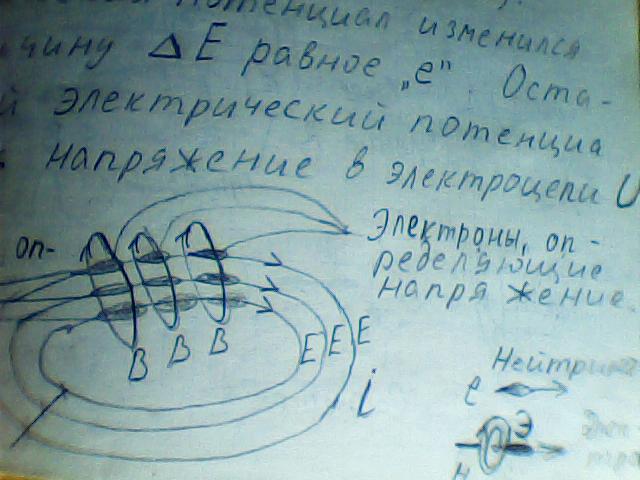 потенциал изменился
чину ΔE равное „е". Оста-
й электрический потенциа
напряжение в электроцепи U
оп-
Электроны, оп-
ределяющие
напряжение.
B B B
E E E
i
Нейтрино
e
Э
н